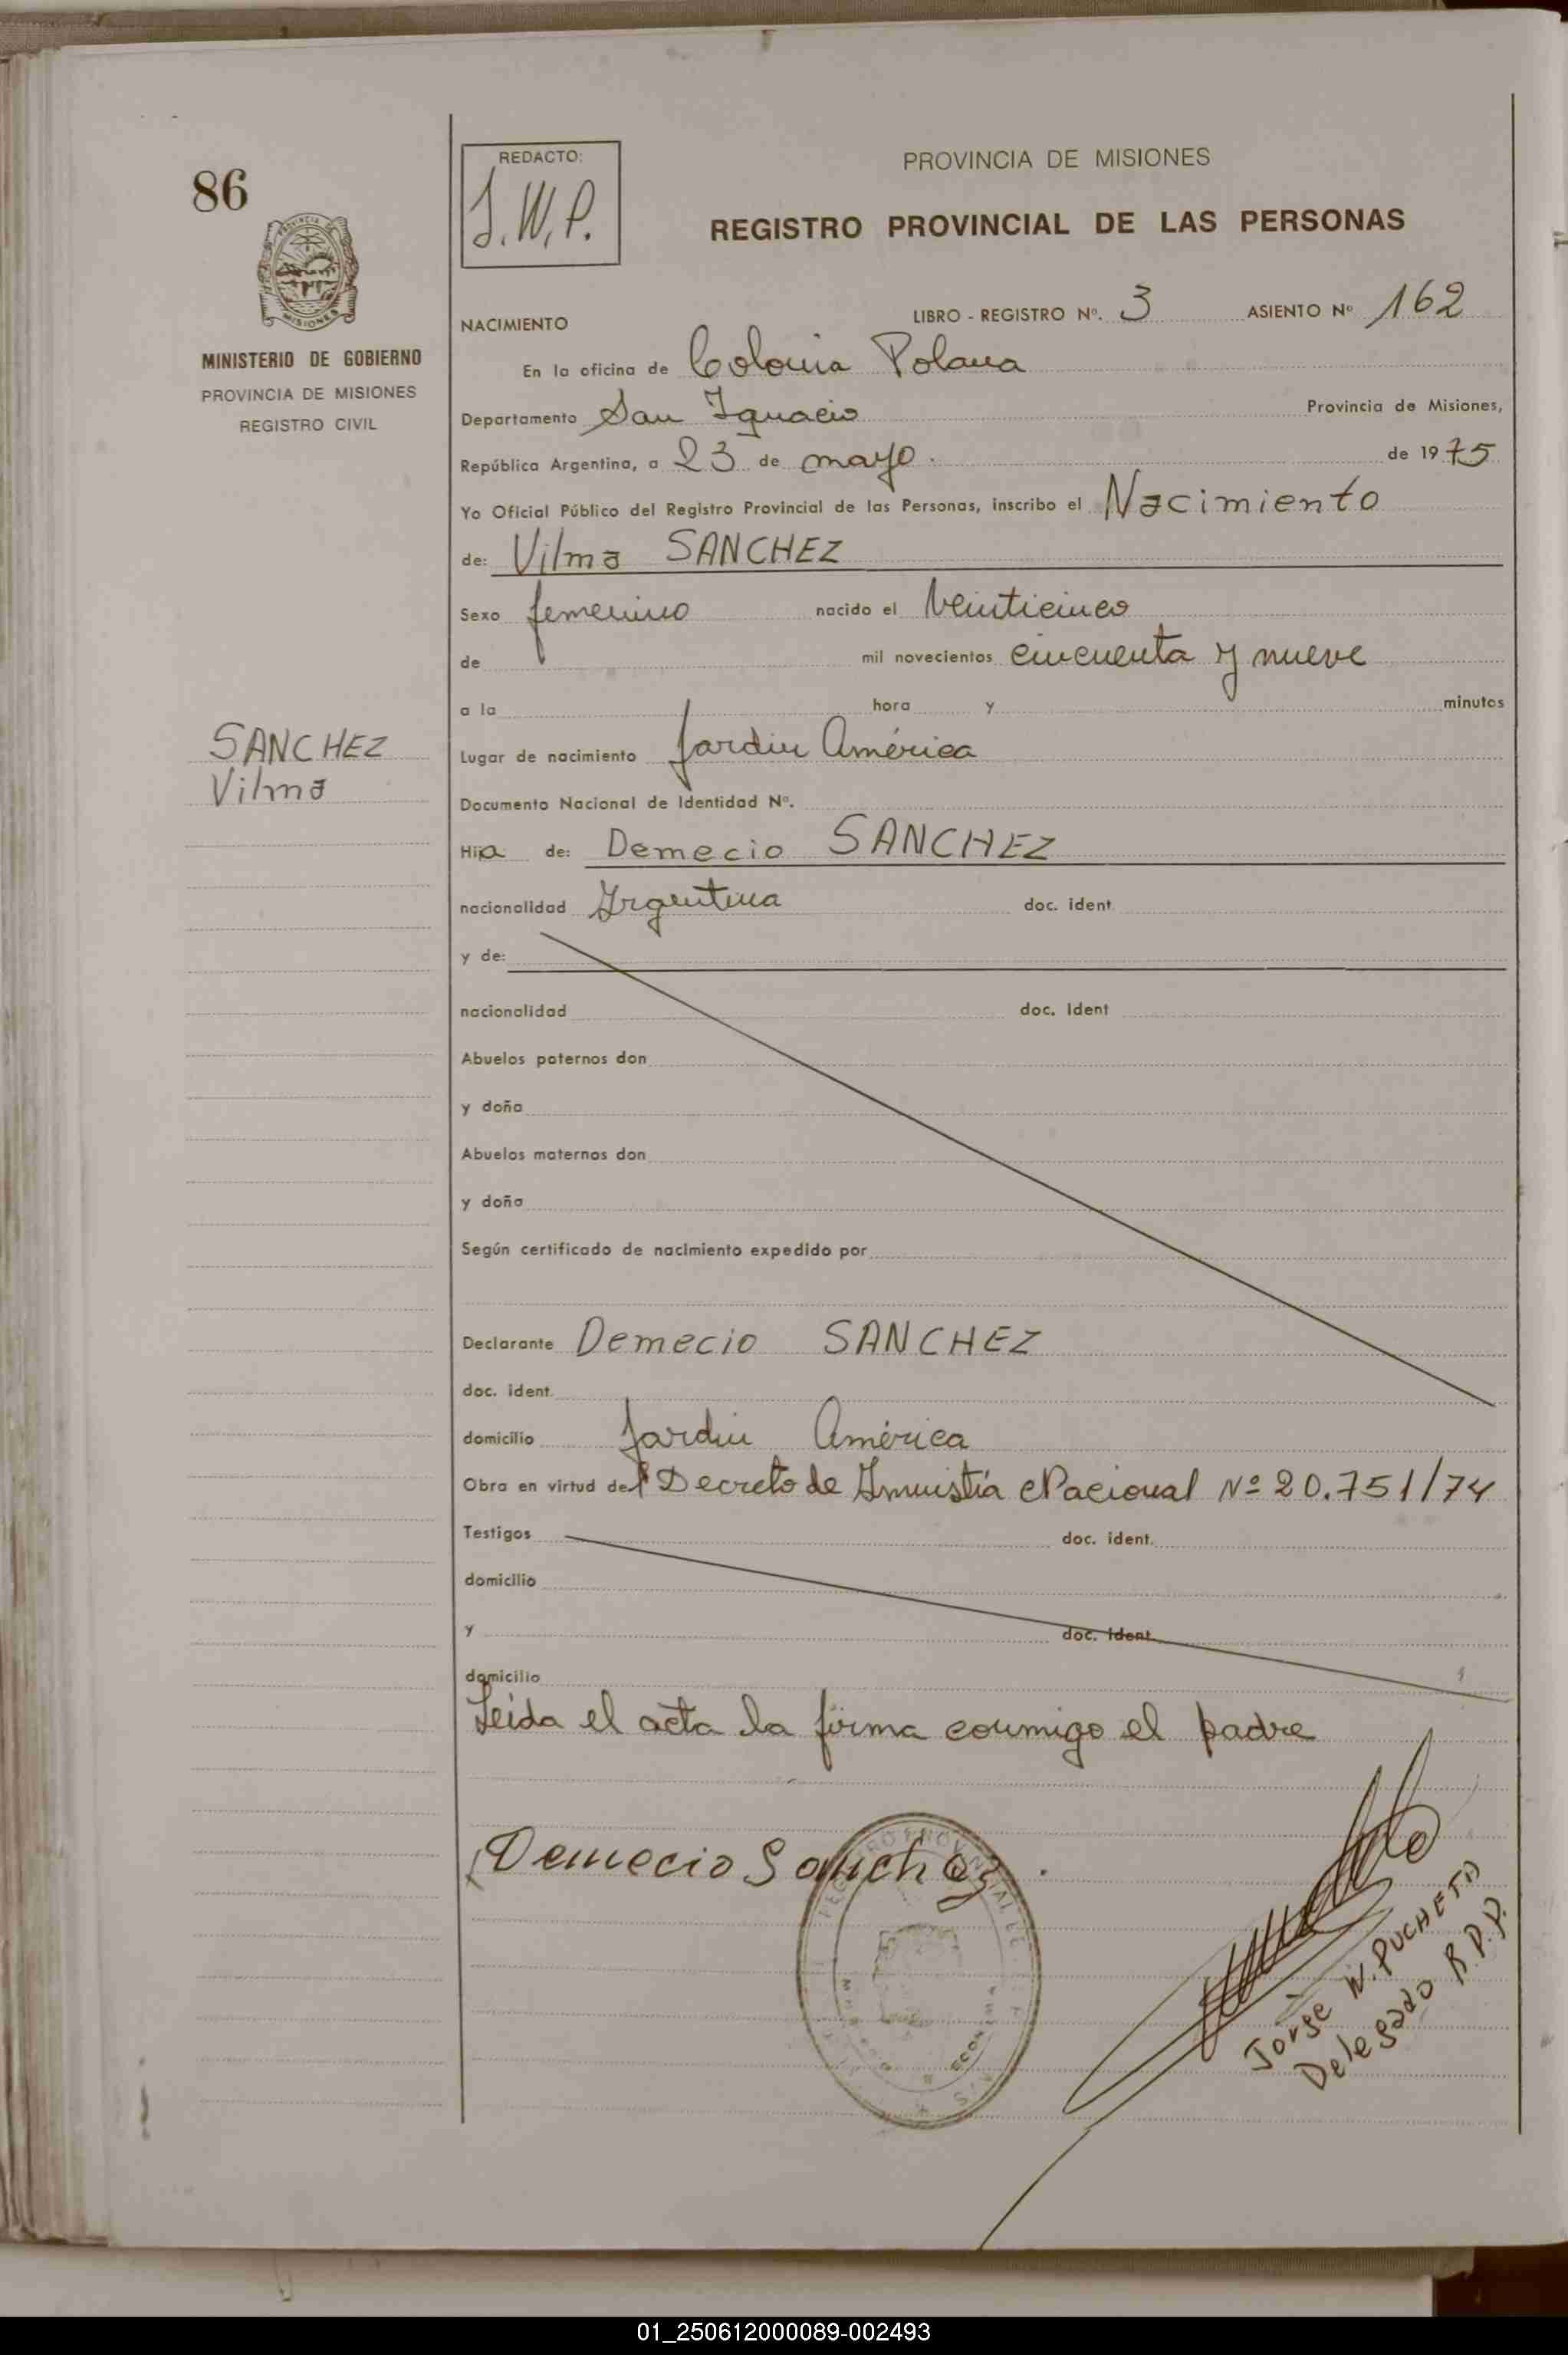 86
REDACTO:
J.W.P.
PROVINCIA DE MISIONES
REGISTRO PROVINCIAL DE LAS PERSONAS
MISIONES
MINISTERIO DE GOBIERNO
PROVINCIA DE MISIONES
REGISTRO CIVIL
NACIMIENTO LIBRO - REGISTRO Nº. 3 ASIENTO Nº 162
En la oficina de Colonia Polana
Departamento San Ignacio Provincia de Misiones,
República Argentina, a 23 de mayo. de 1975
Yo Oficial Público del Registro Provincial de las Personas, inscribo el Nacimiento
de: Vilma SANCHEZ
Sexo femenino nacido el veinticinco
de mil novecientos cincuenta y nueve
a la hora y minutos
SANCHEZ
Vilma
Lugar de nacimiento Jardin América
Documento Nacional de Identidad Nº.
Hija de: Demecio SANCHEZ
nacionalidad Argentina doc. ident.
y de:
nacionalidad doc. Ident
Abuelos paternos don
y doña
Abuelos maternos don
y doña
Según certificado de nacimiento expedido por
Declarante Demecio SANCHEZ
doc. ident.
domicilio Jardin América
Obra en virtud del Decreto de Amnistía Nacional Nº 20.751/74
Testigos doc. ident.
domicilio
y doc. ident.
domicilio
Leida el acta la firma conmigo el padre
Demecio Sanchez
Jorge W. PUCHETA
Delegado R.P.P.
01_250612000089-002493